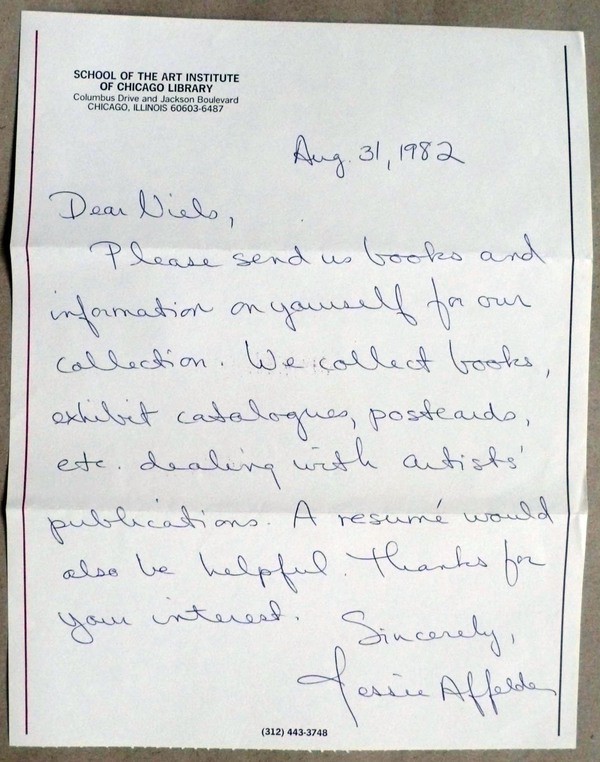 SCHOOL OF THE ART INSTITUTE
OF CHICAGO LIBRARY
Columbus Drive and Jackson Boulevard
CHICAGO, ILLINOIS 60603-6487
Aug. 31, 1982
Dear Niels,
Please send us books and
information on yourself for our
collection. We collect books,
exhibit catalogues, postcards,
etc. dealing with artists'
publications. A resumé would
also be helpful. Thanks for
your interest.
Sincerely,
Jessie Affelder
(312) 443-3748